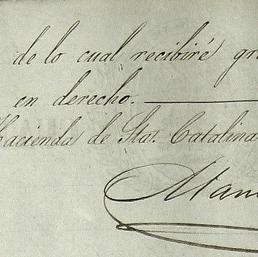 de lo cual recibiré gr
en derecho.
Hacienda de Sta. Catalina
Man